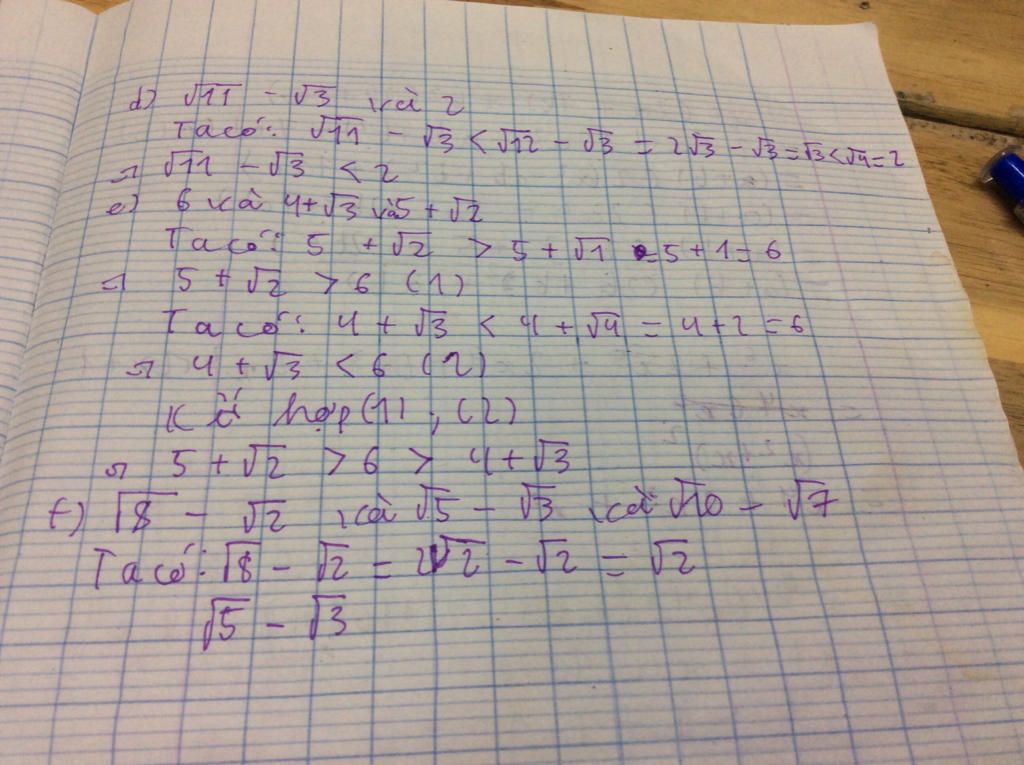 d) √11 - √3 và 2
Ta có: √11 - √3 < √12 - √3 = 2√3 - √3 = √3 < √4 = 2
⇒ √11 - √3 < 2
e) 6 và 4 + √3 và 5 + √2
Ta có: 5 + √2 > 5 + √1 = 5 + 1 = 6
⇒ 5 + √2 > 6 (1)
Ta có: 4 + √3 < 4 + √4 = 4 + 2 = 6
⇒ 4 + √3 < 6 (2)
Kết hợp (1), (2)
⇒ 5 + √2 > 6 > 4 + √3
f) √8 - √2 và √5 - √3 và √10 - √7
Ta có: √8 - √2 = 2√2 - √2 = √2
√5 - √3